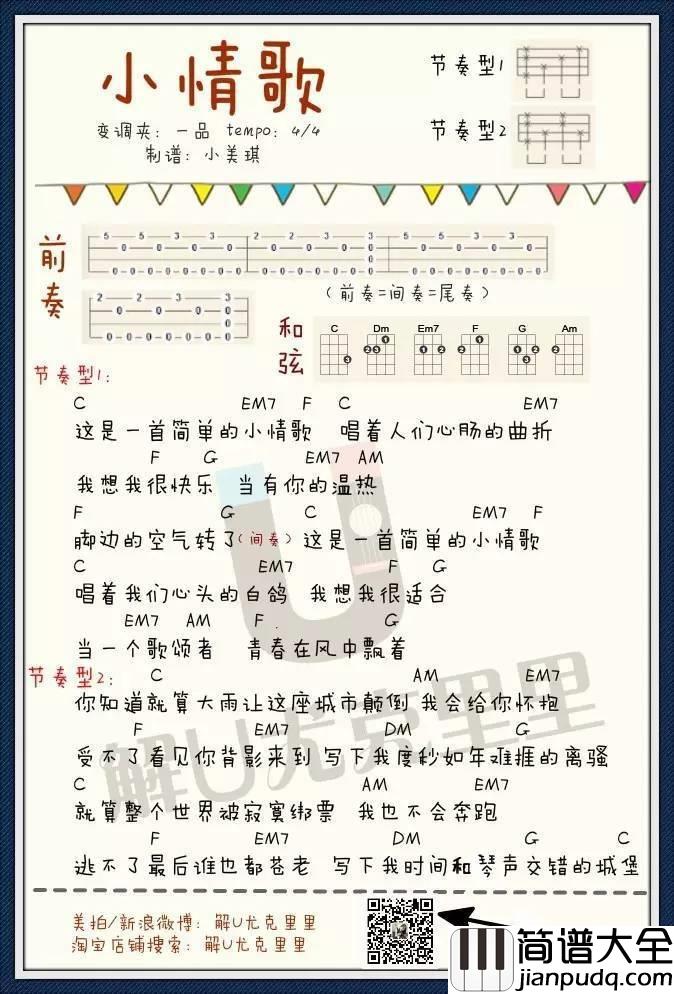 小情歌
节奏型1
变调夹：一品 tempo：4/4
节奏型2
制谱：小美琪
前奏
5 5 3 3 2 2 3 3 5 5 3 3
0 0 0 0 0 0 0 0 0 0 0 0
0 0 0 0 0 0 0 0 0 0 0 0 0
2 2 3 3
（前奏=间奏=尾奏）
0 0 0 0
0 0 0 0 0
和弦
C Dm Em7 F G Am
节奏型1：
C EM7 F C EM7
这是一首简单的小情歌 唱着人们心肠的曲折
F G EM7 AM
我想我很快乐 当有你的温热
F G C EM7 F
脚边的空气转了(间奏) 这是一首简单的小情歌
C EM7 F G
唱着我们心头的白鸽 我想我很适合
EM7 AM F G
当一个歌颂者 青春在风中飘着
节奏型2：
C AM EM7
你知道就算大雨让这座城市颠倒 我会给你怀抱
F EM7 DM G
受不了看见你背影来到 写下我度秒如年难捱的离骚
C AM EM7
就算整个世界被寂寞绑票 我也不会奔跑
F EM7 DM G C
逃不了最后谁也都苍老 写下我时间和琴声交错的城堡
解U尤克里里
美拍/新浪微博：解U尤克里里
淘宝店铺搜索：解U尤克里里
简谱大全
jianpudq.com